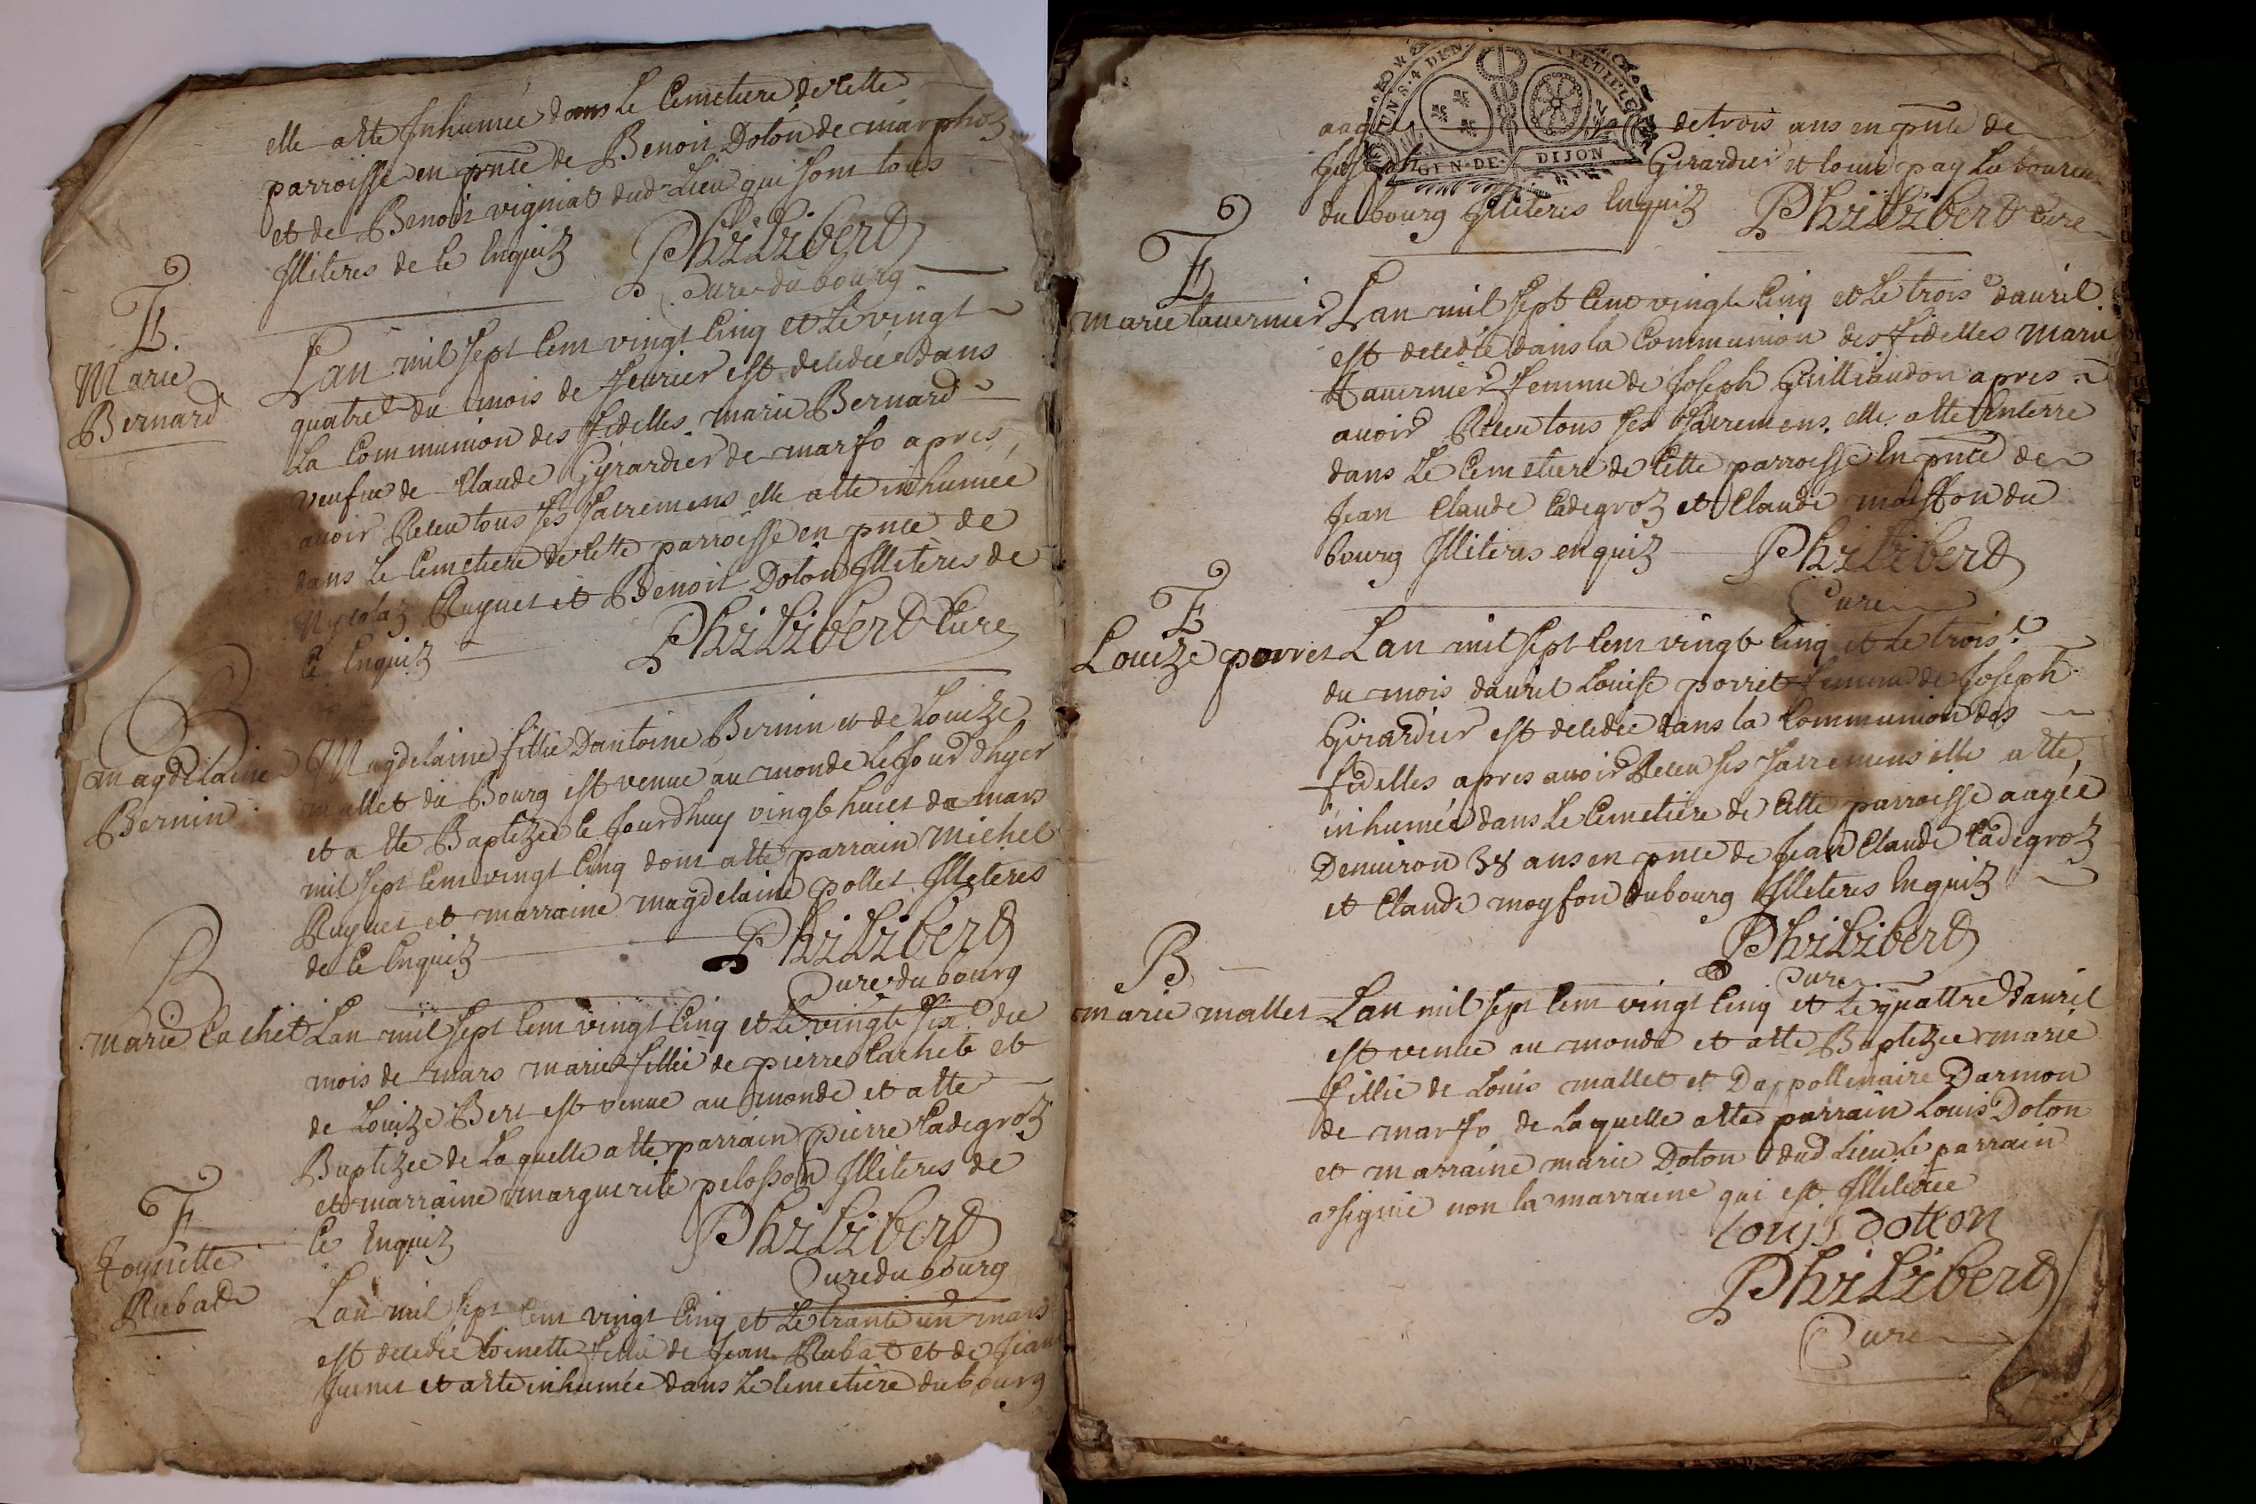 elle a ete Inhumée dans le Cemetiere de cette
parroisse en pnce de Benoit Doton de marphoz
et de Benoit vigniat dud Lieu qui sont tous
Illiteres de ce Enquiz Philibert
Cure du bourg
E
Marie
Bernard
Lan mil sept cent vingt Cinq et le vingt
quatre du mois de feurier est decedée dans
La Communion des fidelles marie Bernard
veufue de Claude Girardier de marfo apres
auoir Receu tous ses sacremens elle a ete inhumée
dans le Cemetiere de cette parroisse en pnce de
Nicolaz Ruynet et Benoit Doton Illiteres de
Ce Enquiz Philibert Cure
B
magdelaine
Bernin
Magdelaine fillie Dantoine Bernin et de Louize
mallet du Bourg est venue au monde le Jour dhyer
et a ete Baptizee le Jourdhuy vingt huict de mars
mil sept cent vingt Cinq dont a ete parrain michel
Ruynet et marraine magdelaine pollet Illeteres
de Ce Enquiz Philibert
Cure du bourg
B
marie Cachet
Lan mil sept cent vingt Cinq et le vingt six.e du
mois de mars marie fillie de pierre Cachet et
de Louize Bert est venue au monde et a ete
Baptizee de Laquelle a ete parrain pierre Cadegroz
et marraine marguerite pelosson Illiteres de
Ce Enquiz Philibert
Cure du bourg
E
Toynette
Rubat
Lan mil sept cent vingt Cinq et le trante un mars
est decedée toinette fillie de Jean Rubat et de Jeanne
Juenet et a ete inhumée dans le Cemetiere du bourg
GEN · DE · DIJON
aag de trois ans en pnce de
Joseph Girardier et louis pay Laboureu
du bourg Illiteres Enquiz Philibert Cure
E
marie tauernier
Lan mil sept Cent vingt Cinq et le trois.e dauril
est decedée dans la Communion des fidelles marie
tauernier femme de Joseph Guilliaudon apres
auoir Receu tous ses sacremens elle a ete Enterre
dans Le Cemetiere de Cette parroisse En pnce de
Jean Claude Cadegroz et Claude moisson du
bourg Illiteres enquiz Philibert
Cure
E
Louize porret
Lan mil sept Cent vingt Cinq et le trois.e
du mois dauril Louise porret femme de Joseph
Girardier est decedée dans la Communion des
fidelles apres auoir Receu ses sacremens elle a ete
inhumée dans Le Cemetiere de Cette parroisse aagée
Denuiron 38 ans en pnce de Jean Claude Cadegroz
et Claude moysson du bourg Illeteres Enquiz
Philibert
Cure
B
marie mallet
Lan mil sept Cent vingt Cinq et Le quattre dauril
est venue au monde et a ete Baptizee marie
fillie de Louis mallet et Dappollenaire Darmon
de marfo de Laquelle a ete parrain Louis Doton
et marraine marie Doton dud Lieu Le parrain
a signé non la marraine qui est Illiterée
louis dotton
Philibert
Cure